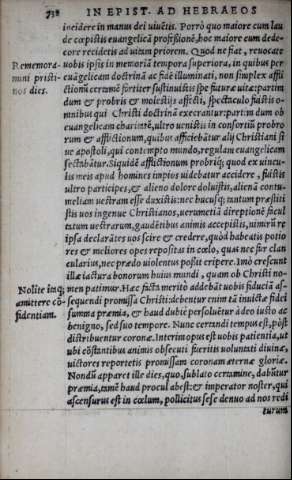 738 IN EPIST. AD HEBRAEOS
incidere in manus dei viuẽtis. Porrò quo maiore cum lau
de cœpistis euangelicā profissionē, hoc maiore cum dede-
core recidetis ad uitam priorem. Quod ne fiat, reuocate
Rememora- uobis ipsis in memoriā tempora superiora, in quibus per
mini pristi- euāgelicam doctrinā ac fidē illuminati, non simplex affli
nos dies. ctionū certamē fortiter sustinuistis spe futuræ uitæ: partim
dum & probris & molestijs affecti, spectaculo fuistis o-
mnibus qui Christi doctrinā execrantur: partim dum ob
euangelicam charitatē, ultro uenistis in consortiū probro
rum & afflictionum, quibus afficiebātur alij Christiani si
ue apostoli, qui contempto mundo, regulam euangelicam
sectabātur. Siquidē afflictionum probrisq; quod ex uincu-
lis meis apud homines impios uidebatur accidere, fuistis
ultro participes, & alieno dolore doluistis, alienā contu-
meliam uestram esse duxistis: nec hucusq; tantum præstiti
stis uos ingenue Christianos, uerumetiā direptionē facul
tatum uestrarum, gaudētibus animis accepistis, nimirū re
ipsa declarātes uos scire & credere, quòd habeatis potio
res & meliores opes repositas in cœlo, quas nec fur clan
cularius, nec prædo uiolentus possit eripere. Imò crescunt
illæ iactura bonorum huius mundi, quam ob Christi no-
Nolite itaq; men patimur. Hac facta meritò addebāt uobis fiduciā as-
amittere cō- sequendi promissa Christi: debentur enim tā inuictæ fidei
fidentiam. summa præmia, & haud dubiè persoluetur à deo iusto ac
benigno, sed suo tempore. Nunc certandi tempus est, pòst
distribuentur coronæ. Interim opus est uobis patientia, ut
ubi obstantibus animis obsecuti fueritis uoluntati diuinæ,
uictores reportetis promissam coronam æternæ gloriæ.
Nondū apparet ille dies, quo sublato certamine, dabūtur
præmia, tamē haud procul abest: & imperator noster, qui
ascensurus est in cœlum, pollicitus sese denuo ad nos redi
turum